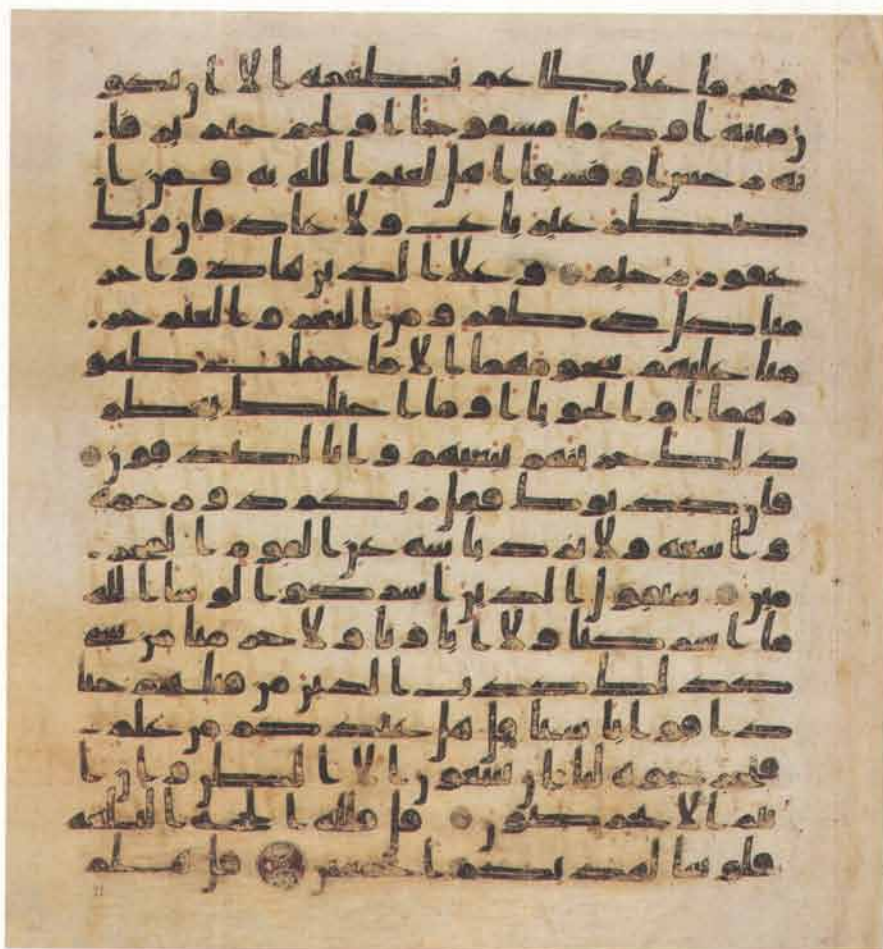 محرما على طاعم يطعمه إلا أن يكو
ن ميتة أو دما مسفوحا أو لحم خنزير فإ
نه رجس أو فسقا أهل لغير الله به فمن ا
ضطر غير باغ ولا عاد فإن ربك
غفور رحيم وعلى الذين هادوا حر
منا كل ذي ظفر ومن البقر والغنم حر
منا عليهم شحومهما إلا ما حملت ظهو
رهما أو الحوايا أو ما اختلط بعظم
ذلك جزينهم ببغيهم وإنا لصدقون
فإن كذبوك فقل ربكم ذو رحمة
وسعة ولا يرد بأسه عن القوم المجر
مين سيقول الذين أشركوا لو شاء الله
ما أشركنا ولا آباؤنا ولا حرمنا من شيء
كذلك كذب الذين من قبلهم حتى
ذاقوا بأسنا قل هل عندكم من علم
فتخرجوه لنا إن تتبعون إلا الظن وإن أ
نتم إلا تخرصون قل فلله الحجة البلغة
فلو شاء لهدكم أجمعين قل هلم